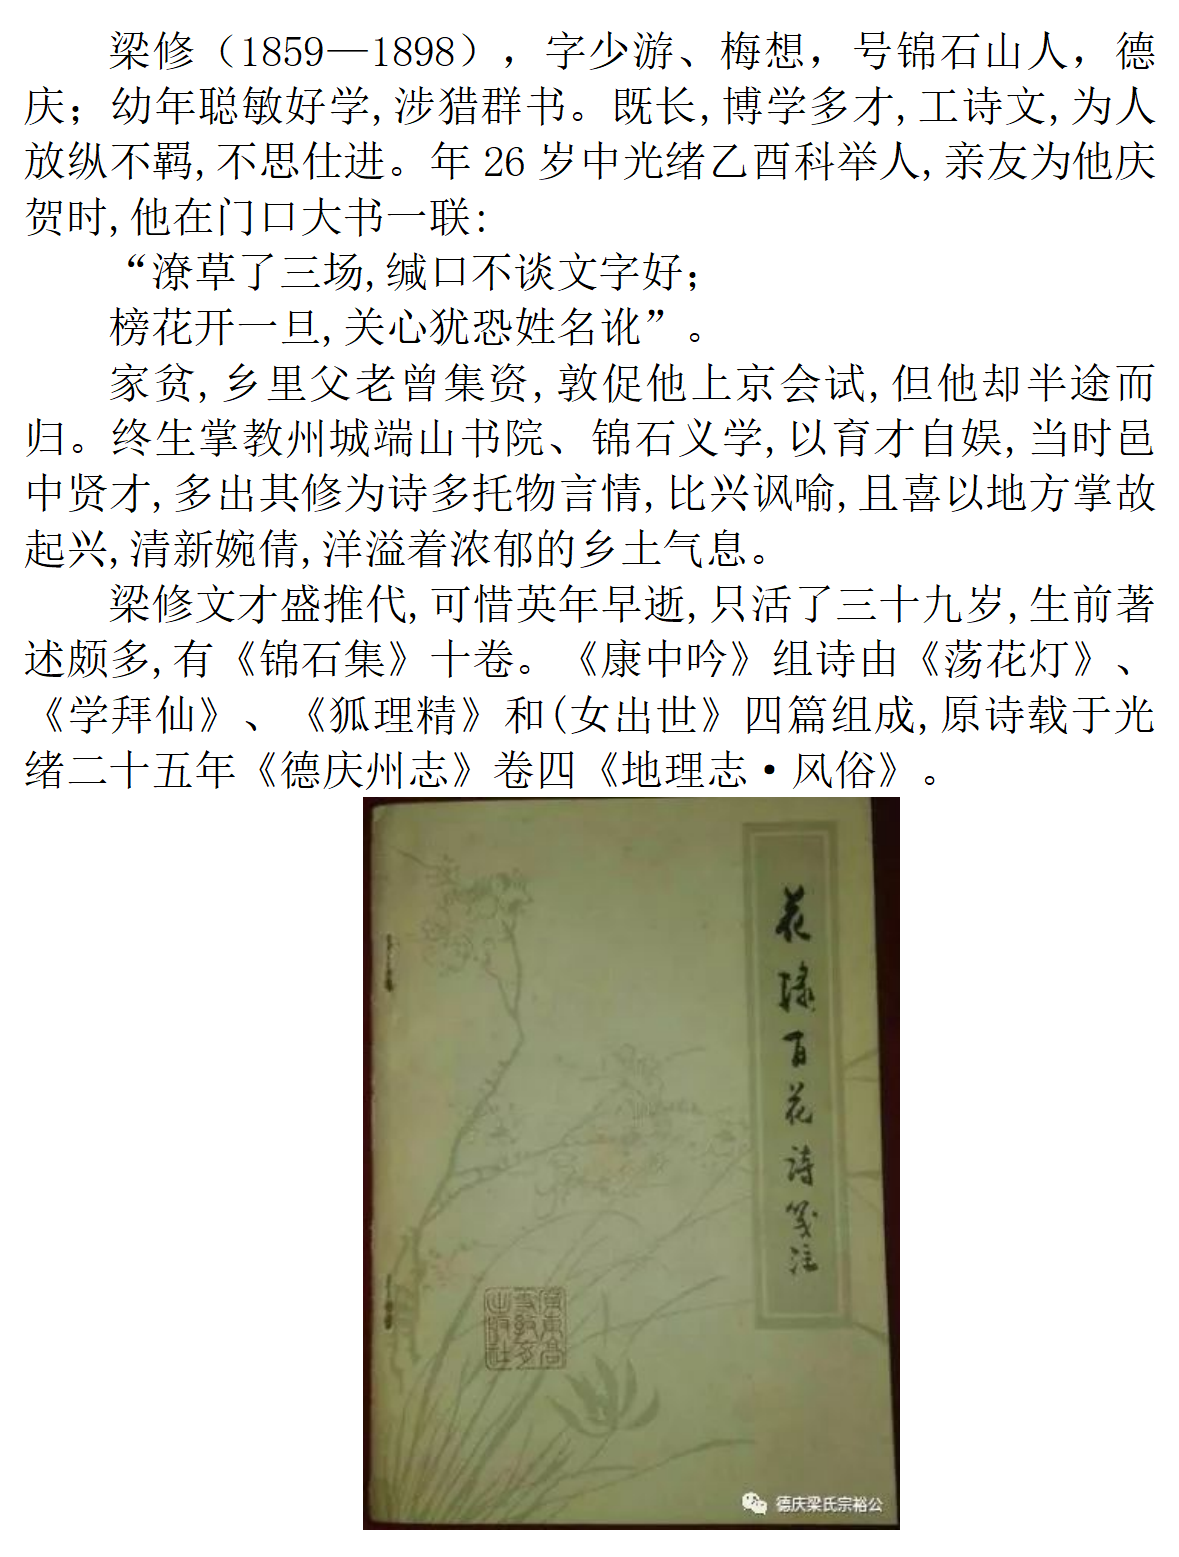 梁修（1859—1898），字少游、梅想，号锦石山人，德
庆；幼年聪敏好学,涉猎群书。既长,博学多才,工诗文,为人
放纵不羁,不思仕进。年 26 岁中光绪乙酉科举人,亲友为他庆
贺时,他在门口大书一联:
“潦草了三场,缄口不谈文字好;
榜花开一旦,关心犹恐姓名讹”。
家贫,乡里父老曾集资,敦促他上京会试,但他却半途而
归。终生掌教州城端山书院、锦石义学,以育才自娱,当时邑
中贤才,多出其修为诗多托物言情,比兴讽喻,且喜以地方掌故
起兴,清新婉倩,洋溢着浓郁的乡土气息。
梁修文才盛推代,可惜英年早逝,只活了三十九岁,生前著
述颇多,有《锦石集》十卷。《康中吟》组诗由《荡花灯》、
《学拜仙》、《狐理精》和(女出世》四篇组成,原诗载于光
绪二十五年《德庆州志》卷四《地理志·风俗》。
花埭百花诗笺注
广东高
等教育
出版社
德庆梁氏宗裕公